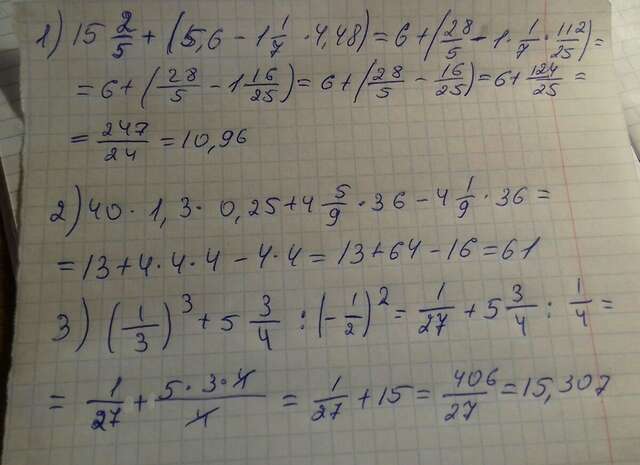 1) 15 2/5 + (5,6 - 1 1/7 · 4,48) = 6 + (28/5 - 1 · 1/7 · 112/25) =
= 6 + (28/5 - 1 16/25) = 6 + (28/5 - 16/25) = 6 + 124/25 =
= 247/24 = 10,96
2) 40 · 1,3 · 0,25 + 4 5/9 · 36 - 4 1/9 · 36 =
= 13 + 4 · 4 · 4 - 4 · 4 = 13 + 64 - 16 = 61
3) (1/3)^3 + 5 3/4 : (- 1/2)^2 = 1/27 + 5 3/4 : 1/4 =
= 1/27 + 5 · 3 · 4/4 = 1/27 + 15 = 406/27 = 15,307